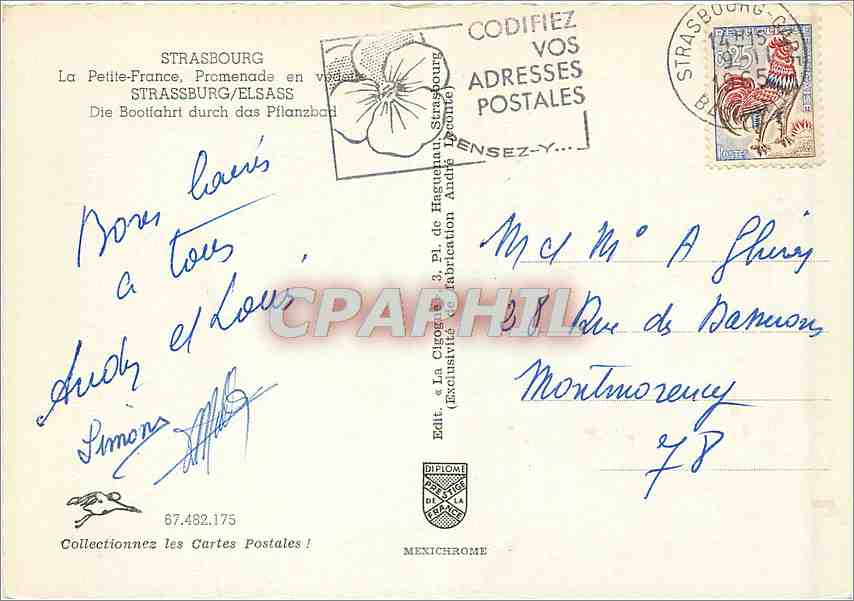 STRASBOURG
La Petite-France, Promenade en
STRASSBURG/ELSASS
Die Bootfahrt durch das Pflanzbad
CODIFIEZ
VOS
ADRESSES
POSTALES
PENSEZ-Y...
STRASBOURG-GARE
14H15
1965
0,25
POSTES
Bons baisers
a tous
Andrée et Louis
Simone
M et Mme A
38 Rue des
Montmorency
78
Edit. « La Cigogne », 3, Pl. de Haguenau, Strasbourg
(Exclusivité de fabrication André Leconte)
CPAPHIL
DIPLOME
PRESTIGE
DE LA
FRANCE
67.482.175
Collectionnez les Cartes Postales !
MEXICHROME